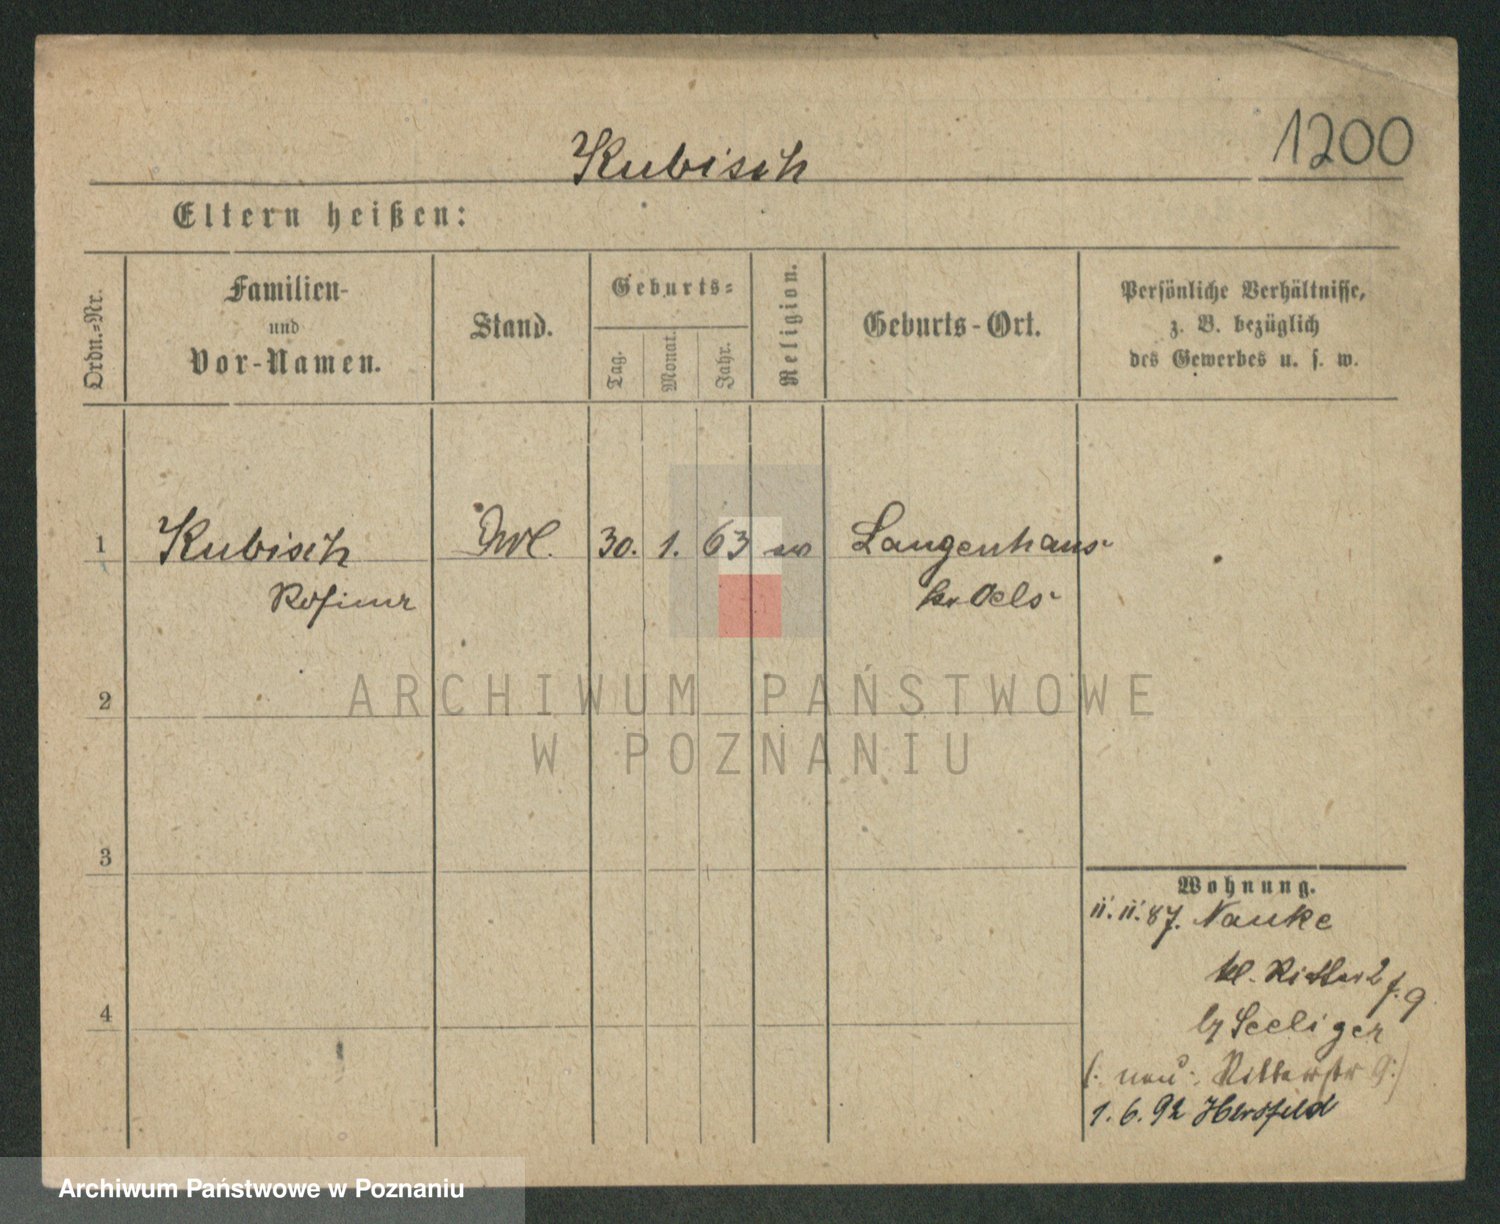 Kubisch 1200
Eltern heißen:
Ordn.=Nr.
Familien-
und
Vor-Namen.
Stand.
Geburts=
Tag.
Monat.
Jahr.
Religion.
Geburts-Ort.
Persönliche Verhältnisse,
z. B. bezüglich
des Gewerbes u. s. w.
1 Kubisch 30. 1. 63 Langenhaus
Oels
2
ARCHIWUM PAŃSTWOWE
W POZNANIU
3
Wohnung.
11. 11. 87. Nauke
kl. Ritter 2
Seeliger
4
neu: Ritterstr 9
1. 6. 92 Hersfeld
Archiwum Państwowe w Poznaniu